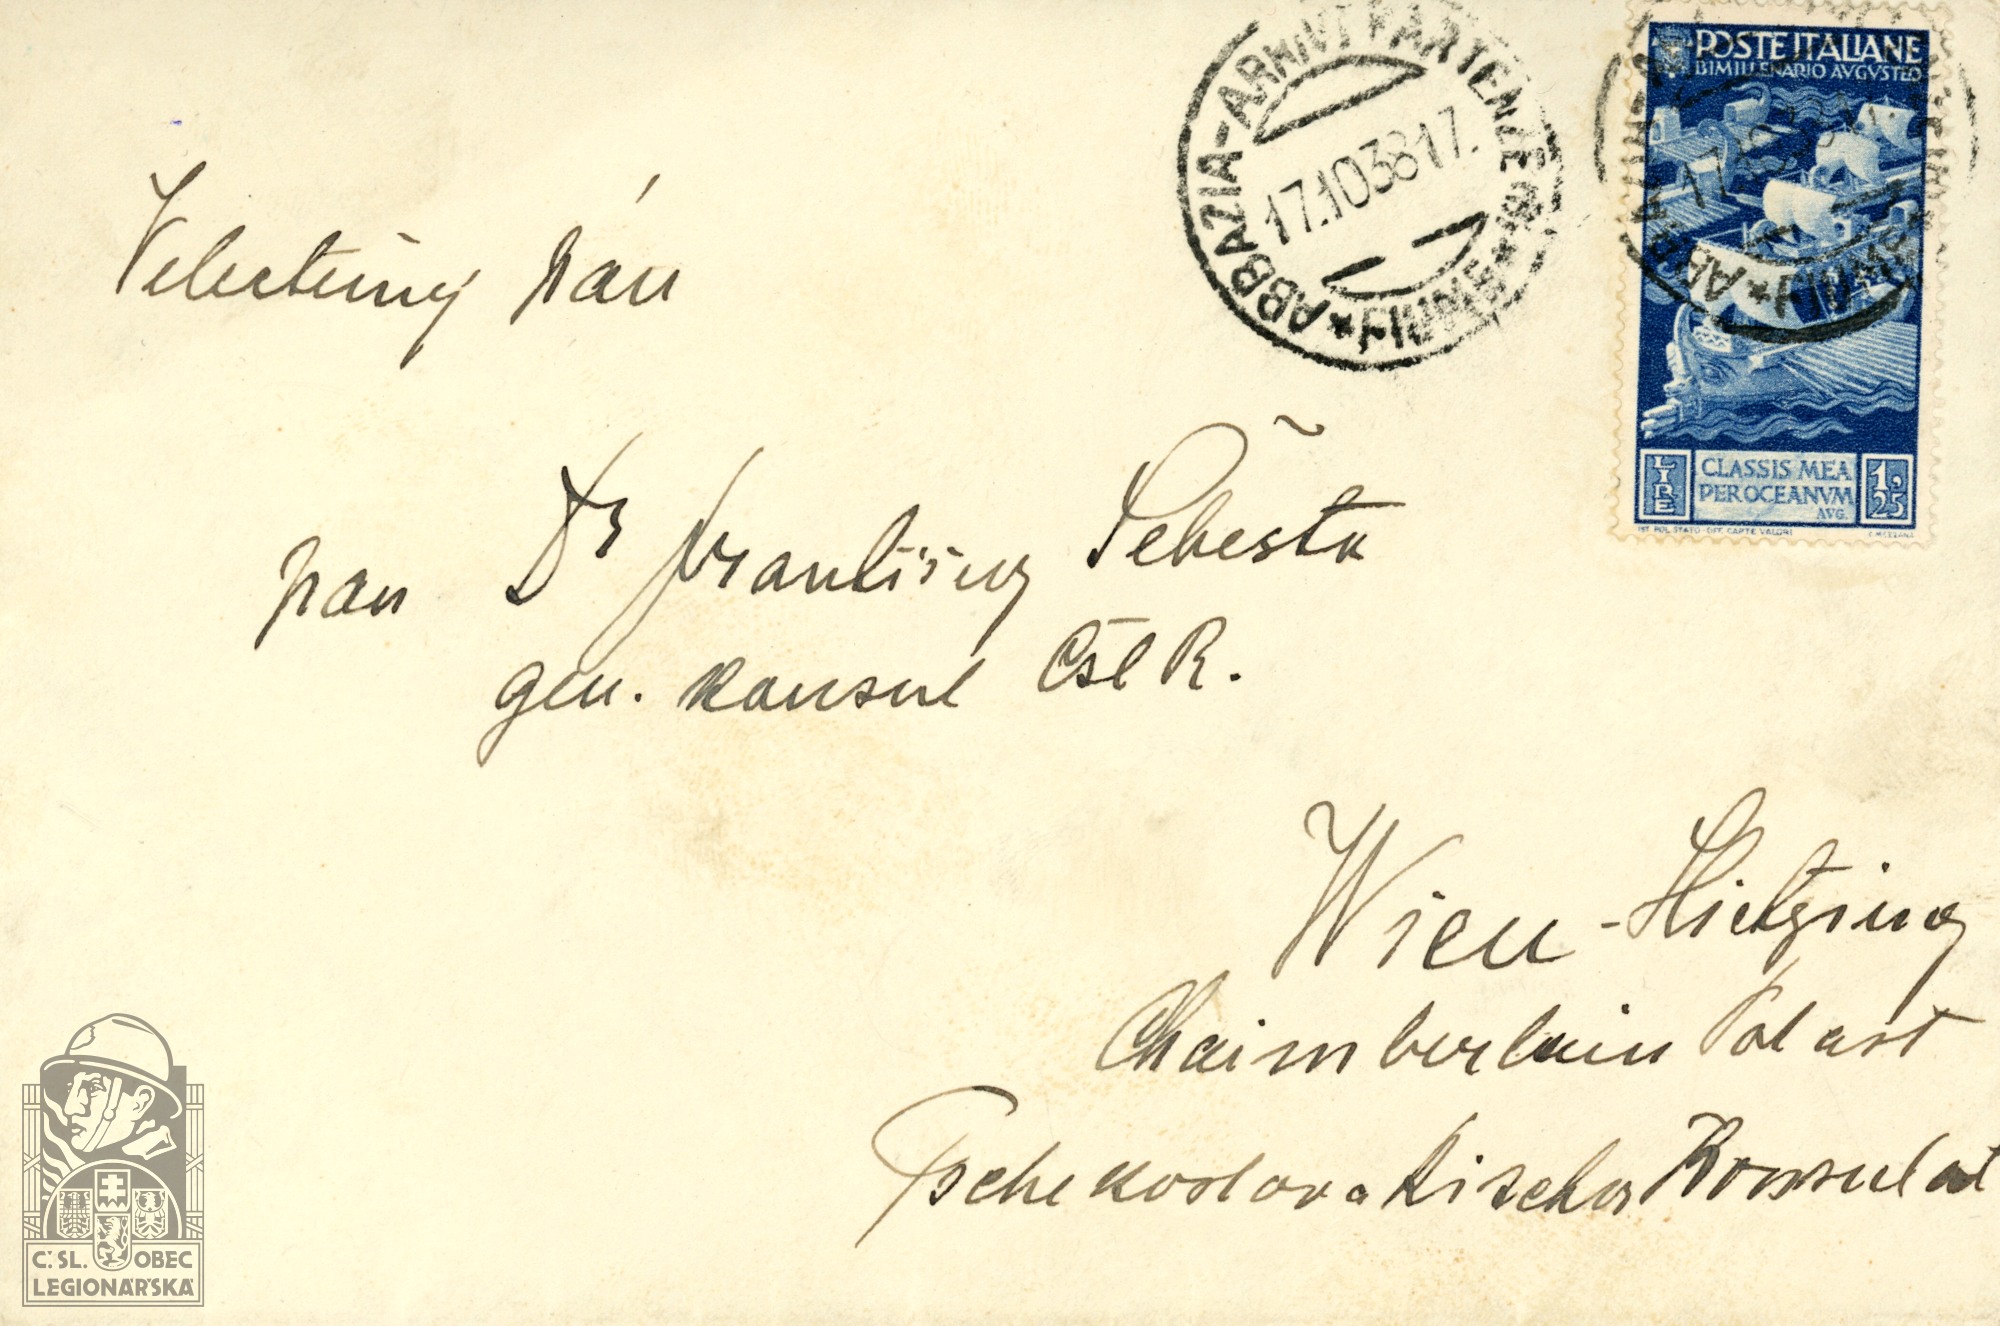 POSTE ITALIANE
BIMILLENARIO AVGVSTEO
ABBAZIA-ARRIVI PARTENZE
17.10.38 17.
* FIUME *
Velectěný pán
pan Dr František Šebesta
gen. konsul Čsl R.
LIRE
CLASSIS MEA
PER OCEANVM
AVG.
1.25
IST. POL. STATO - OFF. CARTE VALORI
C. MEZZANA
Wien-Hietzing
Chaimberlain Palast
Tschekoslovakischer Konsulat
Č.SL. OBEC
LEGIONÁŘSKÁ